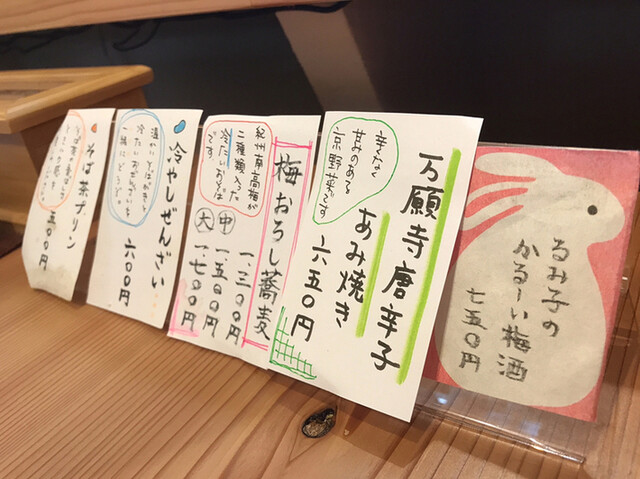 るみ子の
かるーい梅酒
七五〇円
万願寺唐辛子
あみ焼き
六五〇円
辛くなき
甘みのある
京野菜です
梅おろし蕎麦
一、三〇〇円
中 一、五〇〇円
大 一、七〇〇円
紀州南高梅が
二種類入った
冷たいおそば
です。
冷やしぜんざい
六〇〇円
温かいそばがきと
冷たいおぜんざいを
一緒にどうぞ。
そば茶プリン
五〇〇円